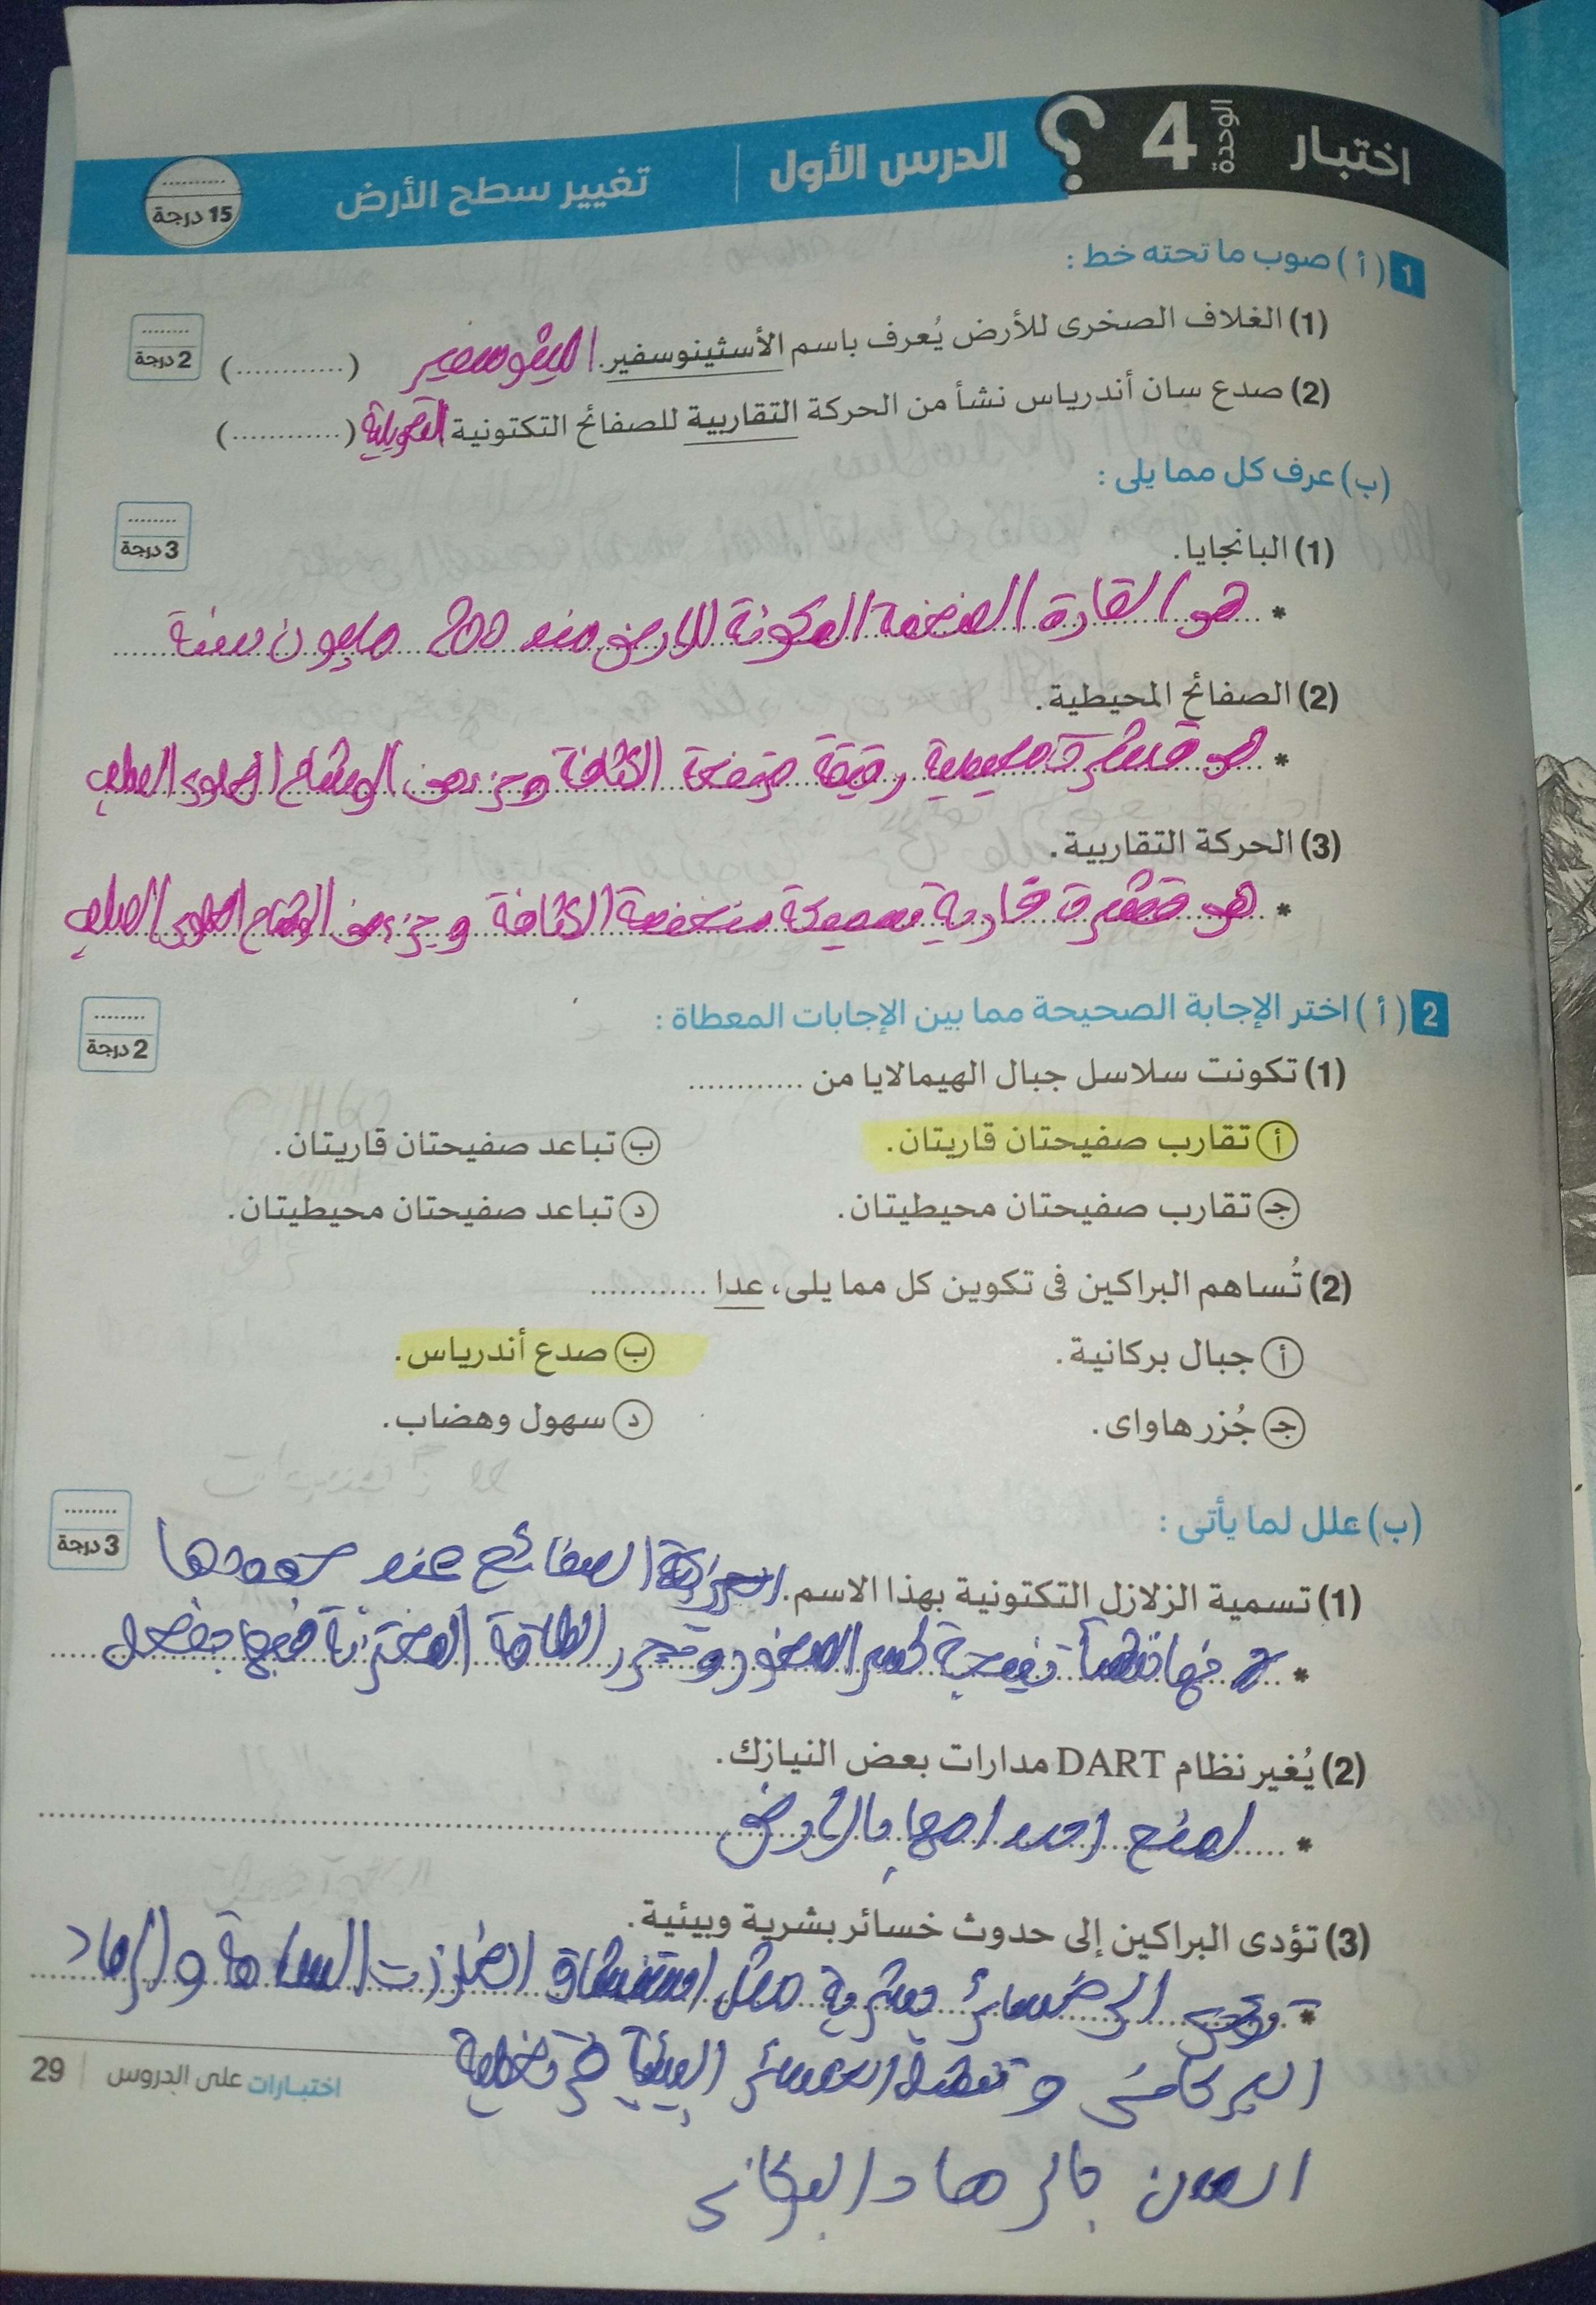 اختبار 4 الوحدة ؟ الدرس الأول | تغيير سطح الأرض
15 درجة
1 (أ) صوب ما تحته خط :
(1) الغلاف الصخرى للأرض يُعرف باسم الأسثينوسفير. الليثوسفير (............)
2 درجة
(2) صدع سان أندرياس نشأ من الحركة التقاربية للصفائح التكتونية التحويلية (............)
(ب) عرف كل مما يلى :
3 درجة
(1) البانجايا.
* هو القارة الضخمة المكونة للارض منذ 200 مليون سنة
(2) الصفائح المحيطية.
* هو قشرة محيطية رقيقة مرتفعة الكثافة وجزء من الوشاح العلوى الصلب
(3) الحركة التقاربية.
* هو قشرة قارية سميكة منخفضة الكثافة وجزء من الوشاح العلوى الصلب
2 (أ) اختر الإجابة الصحيحة مما بين الإجابات المعطاة :
2 درجة
(1) تكونت سلاسل جبال الهيمالايا من ............
أ تقارب صفيحتان قاريتان.
ب تباعد صفيحتان قاريتان.
ج تقارب صفيحتان محيطيتان.
د تباعد صفيحتان محيطيتان.
(2) تُساهم البراكين فى تكوين كل مما يلى، عدا ............
أ جبال بركانية.
ب صدع أندرياس.
ج جُزر هاواى.
د سهول وهضاب.
(ب) علل لما يأتى :
3 درجة
(1) تسمية الزلازل التكتونية بهذا الاسم. حركة الصفائح عند حدودها
* لانها تنشأ نتيجة كسر الصخور وتحرر الطاقة المختزنة فيها بفعل
(2) يُغير نظام DART مدارات بعض النيازك.
* لمنع اصدامها بالأرض
(3) تؤدى البراكين إلى حدوث خسائر بشرية وبيئية.
* تؤدى الى خسائر بشرية مثل استنشاق الغازات السامة والرماد
البركانى و الخسائر البيئية تغطية
المدن بالرماد البركانى
اختبارات على الدروس | 29